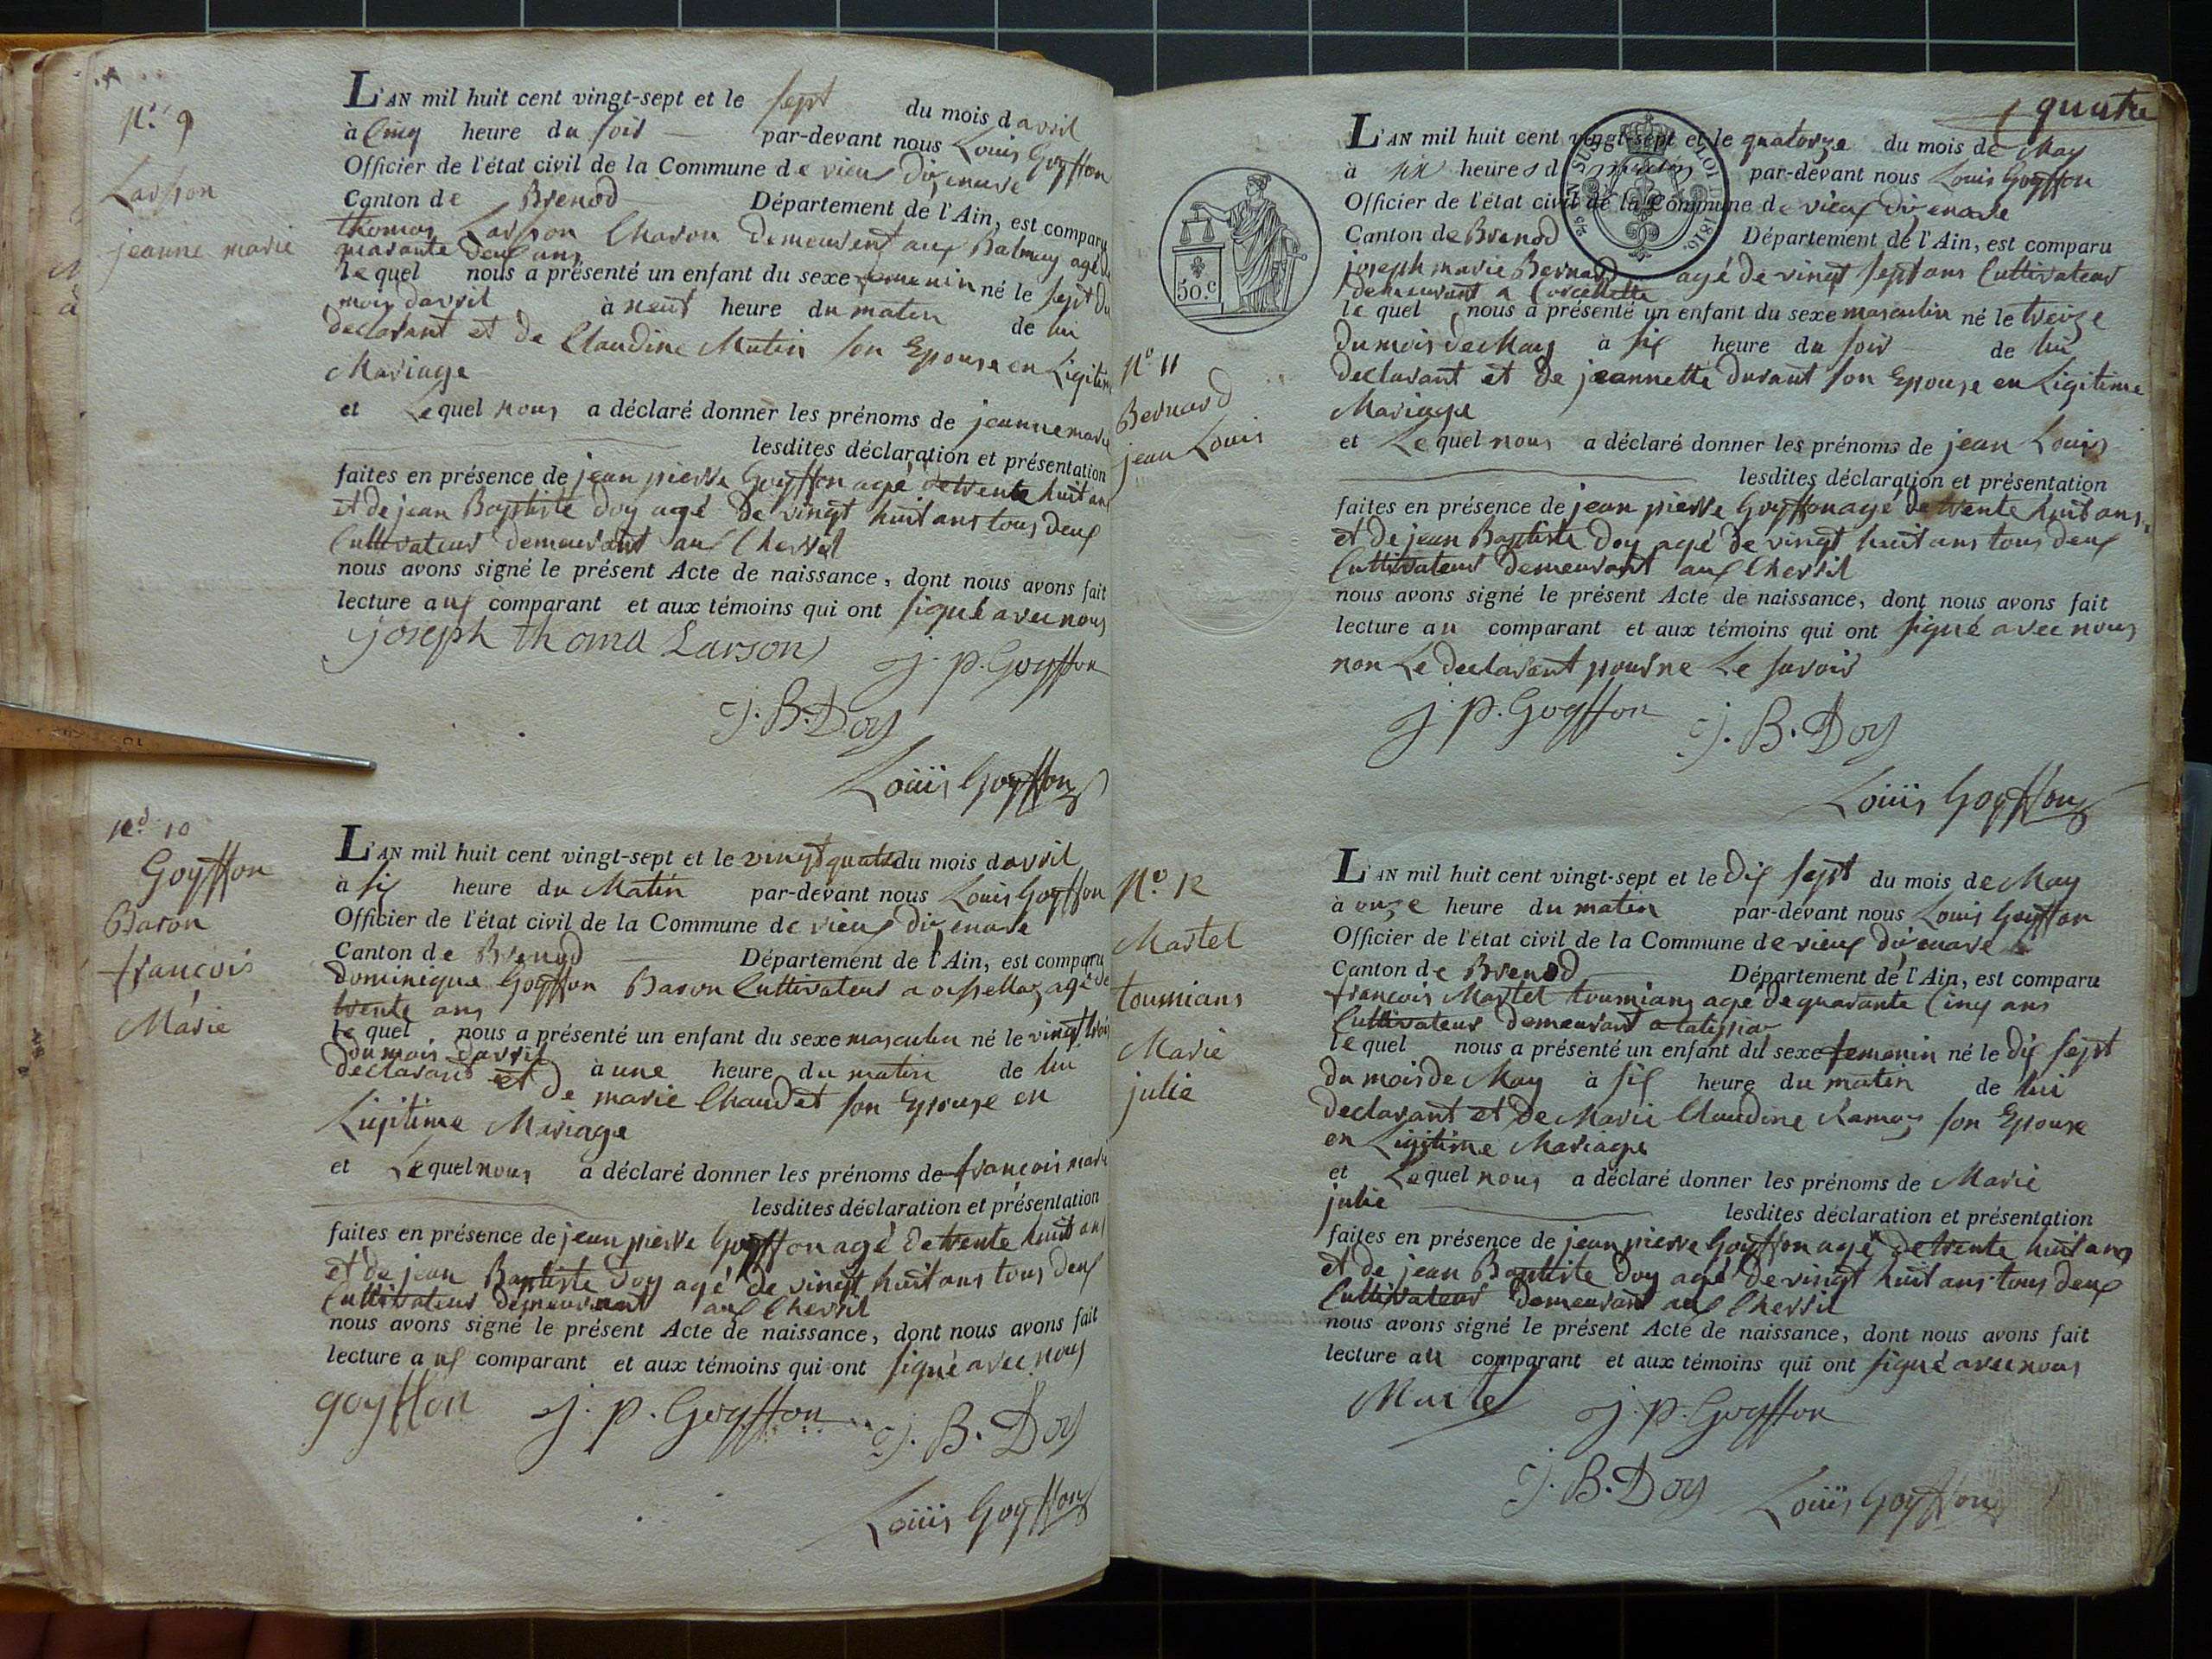 N.o 9
Larson
jeanne marie
L'AN mil huit cent vingt-sept et le sept du mois d avril
à Cinq heure du soir par-devant nous Louis Goyffon
Officier de l'état civil de la Commune de vieux dizenave
Canton de Brenod Département de l'Ain, est comparu
thomas Larson Charon demeurent aux Balmay agé de
quarante deux ans
le quel nous a présenté un enfant du sexe femenin né le sept du
mois davril à neuf heure du matin de lui
declarant et de Claudine Mutin son Epouse en Ligitime
Mariage
et Lequel nous a déclaré donner les prénoms de jeanne marie
lesdites déclaration et présentation
faites en présence de jean pierre Goyffon agé de trente huit ans
et de jean Baptiste doy agé de vingt huit ans tous deux
Cultivateur demeurant aux Chevril
nous avons signé le présent Acte de naissance, dont nous avons fait
lecture aux comparant et aux témoins qui ont signé avec nous
joseph thoma Larson j. p. Goyffon
j. B. Doy
Louis Goyffon
N.o 10
Goyffon
Baron
françois
Marie
L'AN mil huit cent vingt-sept et le vingt quatre du mois d avril
à six heure du Matin par-devant nous Louis Goyffon
Officier de l'état civil de la Commune de vieux dizenave
Canton de Brenod Département de l'Ain, est comparu
dominique Goyffon Baron Cultivateur a agé de
trente ans
le quel nous a présenté un enfant du sexe masculin né le vingt trois
du mois davril à une heure du matin de lui
declarant et de marie Chaudet son Epouse en
Ligitime Mariage
et Lequel nous a déclaré donner les prénoms de françois marie
lesdites déclaration et présentation
faites en présence de jean pierre Goyffon agé de trente huit ans
et de jean Baptiste doy agé de vingt huit ans tous deux
Cultivateur demeurant aux Chevril
nous avons signé le présent Acte de naissance, dont nous avons fait
lecture aux comparant et aux témoins qui ont signé avec nous
goyffon j. p. Goyffon j. B. Doy
Louis Goyffon
quatre
50.c
LOI DE 1816.
N.o 11
Bernard
jean Louis
L'AN mil huit cent vingt-sept et le quatorze du mois de May
à six heures d matin par-devant nous Louis Goyffon
Officier de l'état civil de la Commune de vieux dizenave
Canton de Brenod Département de l'Ain, est comparu
joseph marie Bernard agé de vingt sept ans Cultivateur
demeurant a Corcellette
le quel nous a présenté un enfant du sexe masculin né le treize
du mois de May à six heure du soir de lui
declarant et de jeannette durant son Epouse en Ligitime
Mariage
et Lequel nous a déclaré donner les prénoms de jean Louis
lesdites déclaration et présentation
faites en présence de jean pierre Goyffon agé de trente huit ans
et de jean Baptiste doy agé de vingt huit ans tous deux
Cultivateur demeurant aux Chevril
nous avons signé le présent Acte de naissance, dont nous avons fait
lecture au comparant et aux témoins qui ont signé avec nous
non Le declarant pour ne Le savoir
j. p. Goyffon j. B. Doy
Louis Goyffon
N.o 12
Martel
toumians
Marie
julie
L'AN mil huit cent vingt-sept et le dix sept du mois de May
à onze heure du matin par-devant nous Louis Goyffon
Officier de l'état civil de la Commune de vieux dizenave
Canton de Brenod Département de l'Ain, est comparu
françois Martel toumians agé de quarante Cinq ans
Cultivateur demeurant a
le quel nous a présenté un enfant du sexe femenin né le dix sept
du mois de May à six heure du matin de lui
declarant et de Marie Claudine Ramoy son Epouse
en Ligitime Mariage
et Lequel nous a déclaré donner les prénoms de Marie
julie lesdites déclaration et présentation
faites en présence de jean pierre Goyffon agé de trente huit ans
et de jean Baptiste doy agé de vingt huit ans tous deux
Cultivateur demeurant aux Chevril
nous avons signé le présent Acte de naissance, dont nous avons fait
lecture au comparant et aux témoins qui ont signé avec nous
Martel j. p. Goyffon
j. B. Doy Louis Goyffon